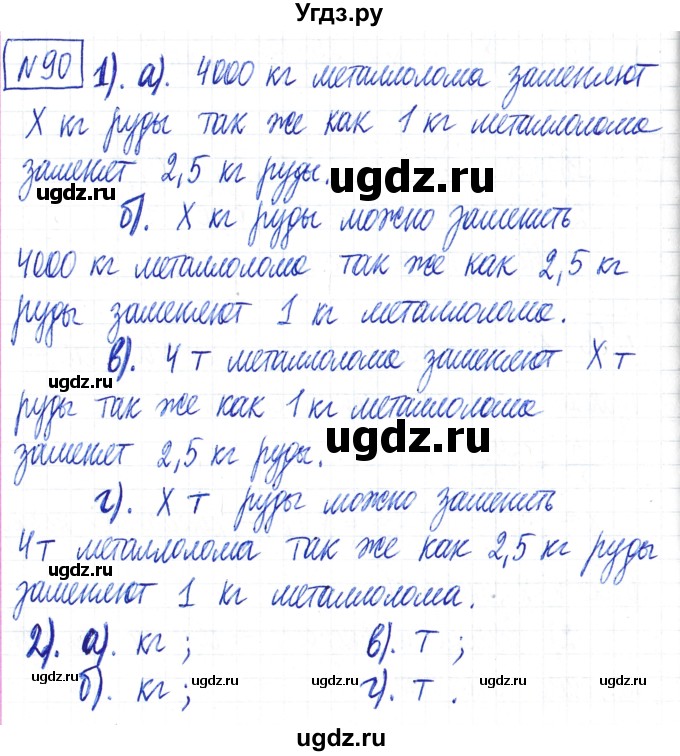 Угдз.ру
№90 1). а). 4000 кг металлолома заменяют
X кг руды так же как 1 кг металлолома
заменяет 2,5 кг руды.
ugdz.ru
ugdz.ru
б). X кг руды можно заменить
4000 кг металлолома так же как 2,5 кг
руды заменяют 1 кг металлолома.
в). 4 т металлолома заменяют X т
ugdz.ru
руды так же как 1 кг металлолома
ugdz.ru
заменяет 2,5 кг руды.
г). X т руды можно заменить
4 т металлолома так же как 2,5 кг руды
ugdz.ru
заменяют 1 кг металлолома.
2). а). кг ; в). т ;
б). кг ; г). т .
ugdz.ru ugdz.ru ugdz.ru ugdz.ru
ugdz.ru